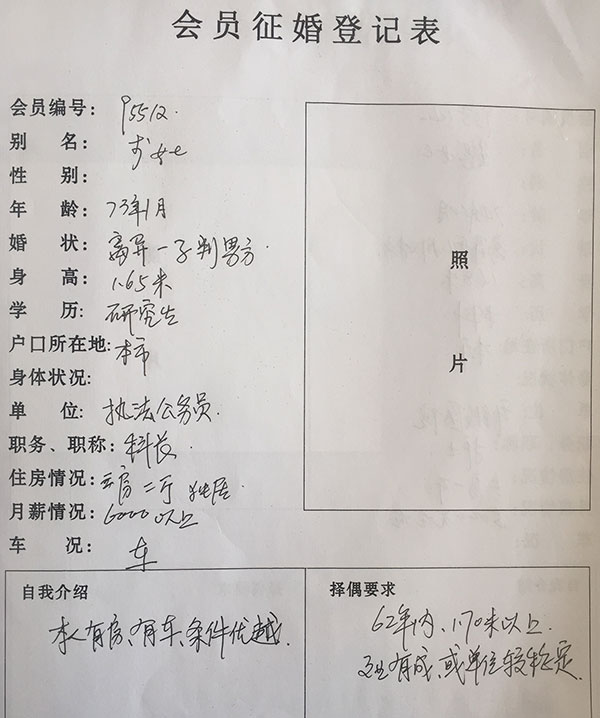 会员征婚登记表
会员编号: 95512.
别 名: 女士
性 别:
年 龄: 73年1月
婚 状: 离异一子判男方
身 高: 1.65米
学 历: 研究生
户口所在地: 本市
身体状况:
单 位: 执法公务员.
职务、职称: 科长
住房情况: 三房二厅 独居
月薪情况: 6000以上
车 况: 车
照
片
自我介绍
本人有房、有车、条件优越.
择偶要求
62年内、1.70米以上
有成、或单位较稳定.